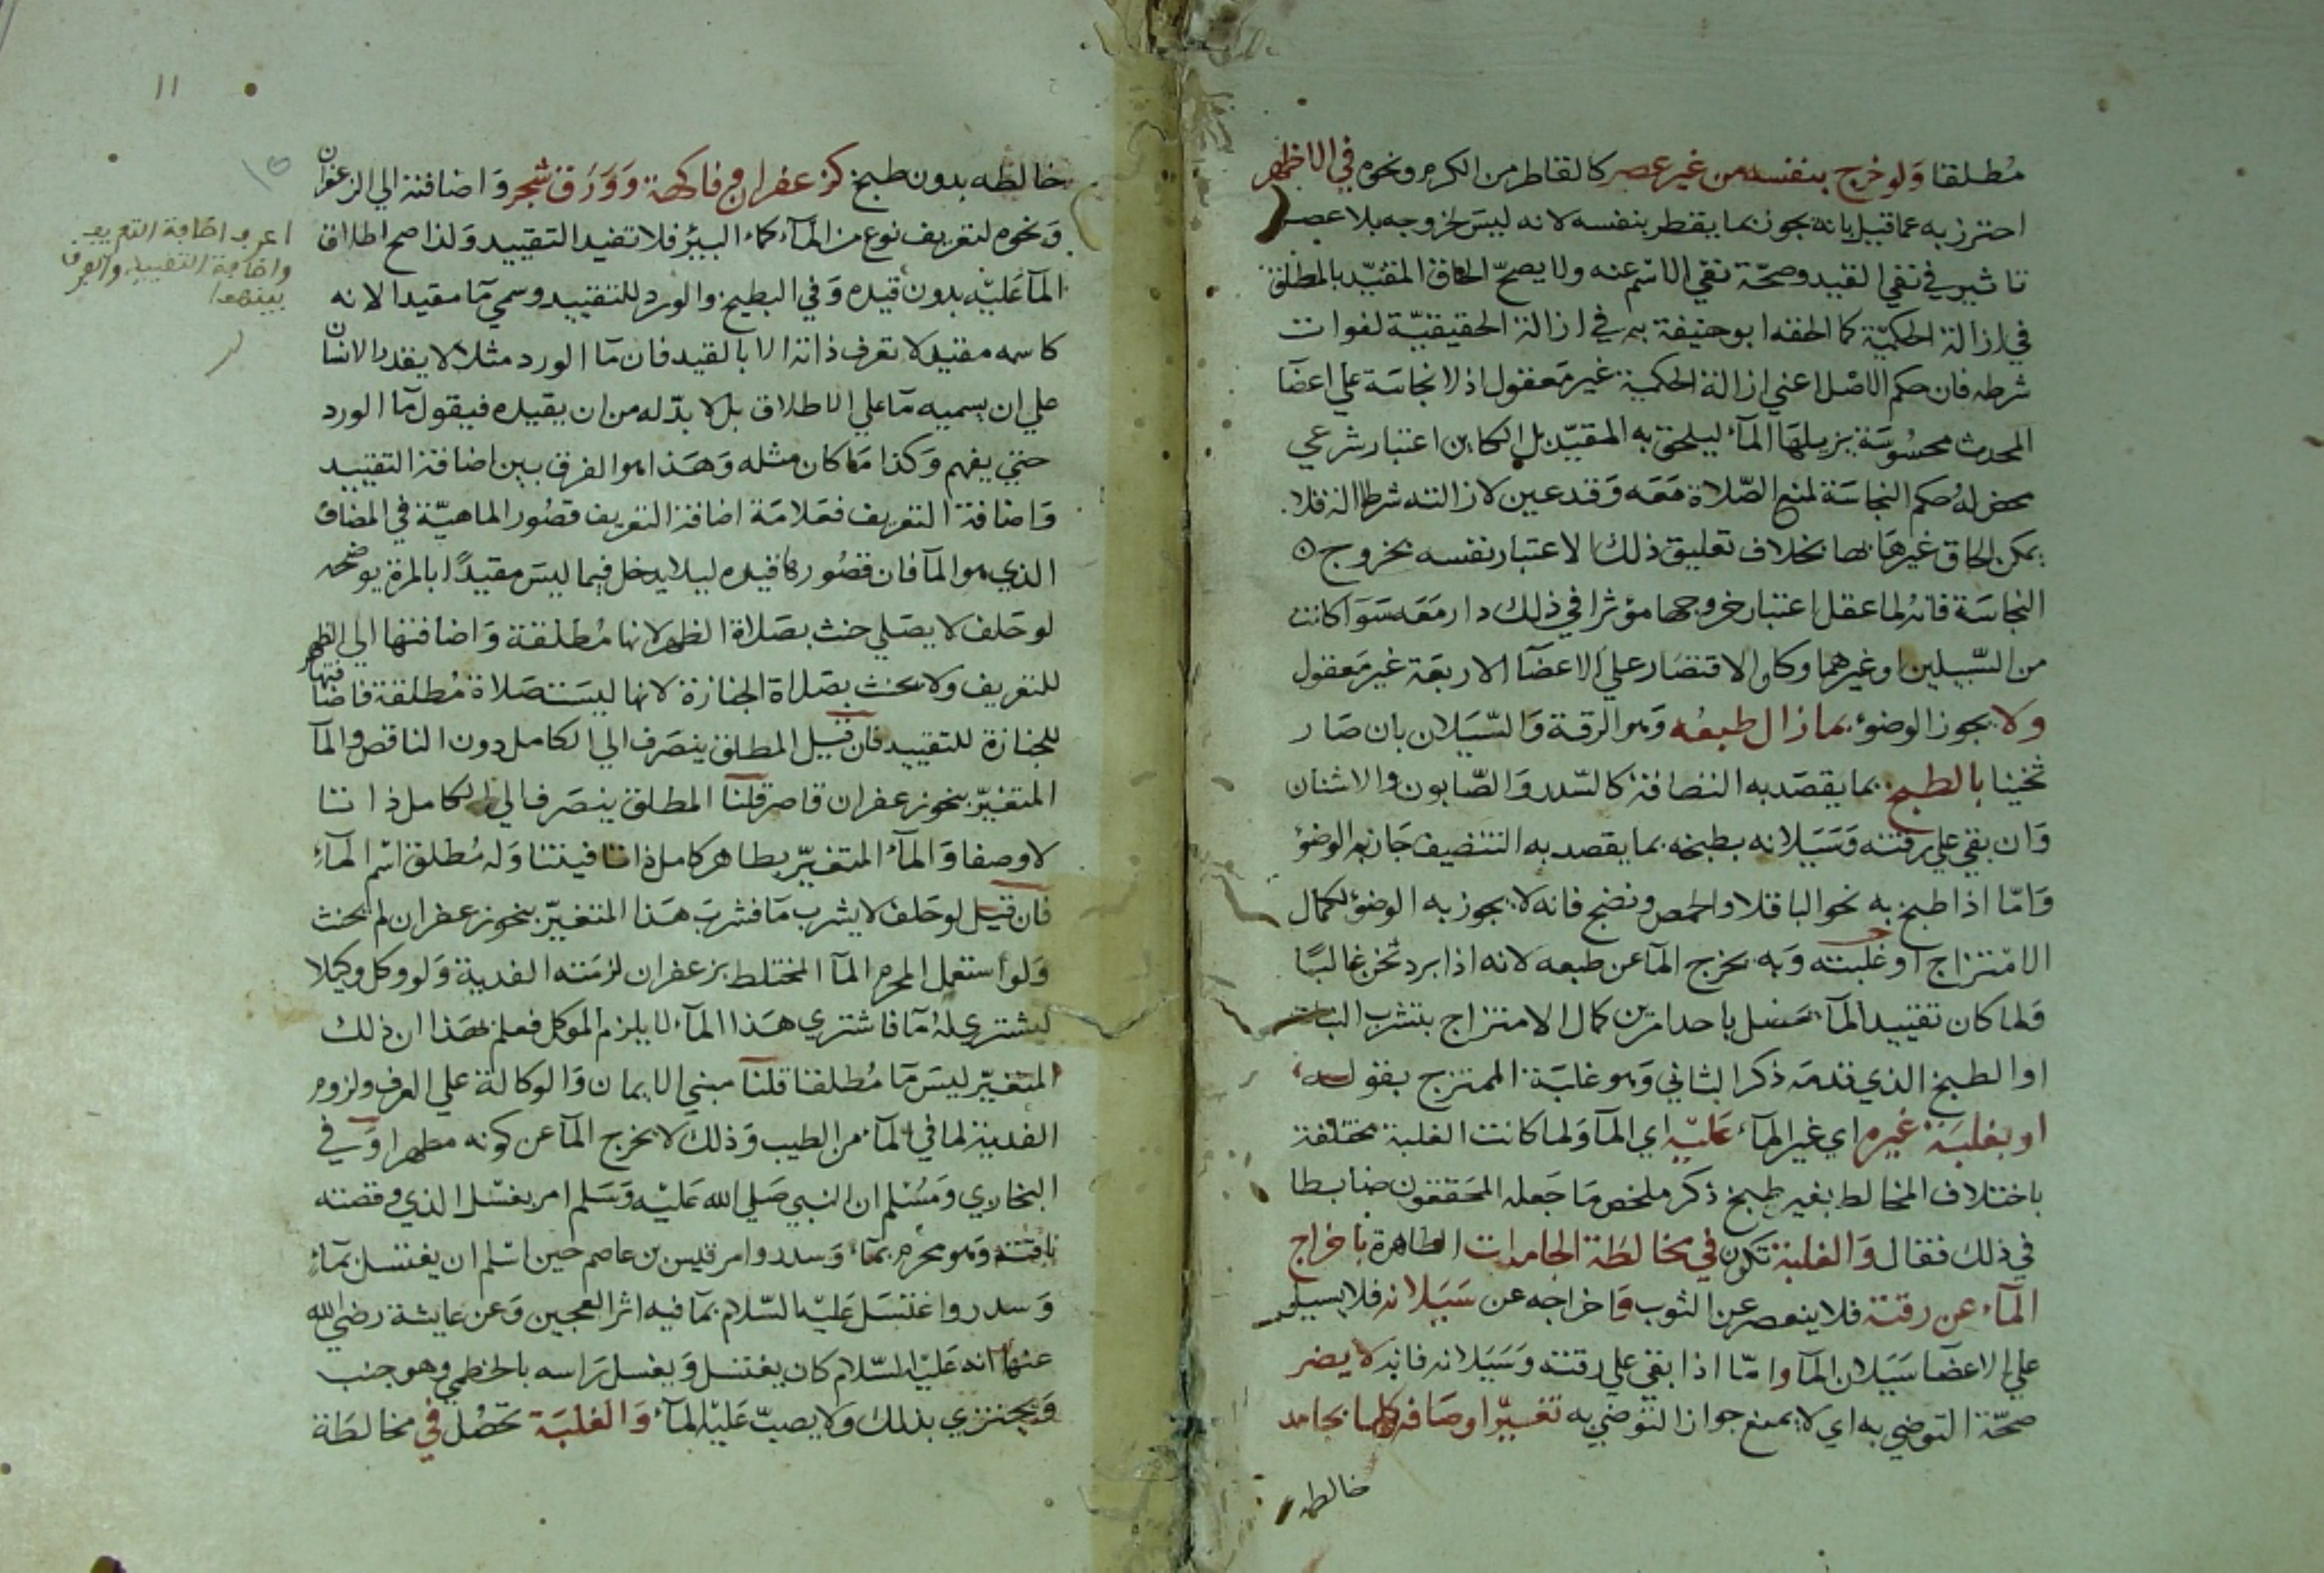 مُطلقا وَلو خرج بنفسه من غير عصر كالقاطر من الكرم ونحوه في الاظهر
احترز به عما قيل بانه يجوز بما يقطر بنفسه لانه ليسَ لخروجه بلا عصر
تاثير في نفي القيد وصحّة نفي الاسم عنه ولا يصحّ الحاق المقيّد بالمطلق
في ازالة الحكميّة كما الحقه ابو حنيفة به في ازالة الحقيقيّة لفوات
شرطه فان حكم الاصل اعني ازالة الحكمية غير مَعقول اذ لا نجاسَة علي اعضآ
المحدث محسُوسَة يزيلهَا المآء ليلحق به المقيّد بل الكاين اعتبار شرعي
محض لهُ حكم النجاسَة لمنع الصّلاة مَعَه وَقد عين لازالته شرعا الة فلا
يمكن الحاق غيرهَا بها بخلاف تعليق ذلك الاعتبار نفسه بخروج
النجاسَة فانهُ لما عقل اعتبار خروجها مؤثرا في ذلك دار مَعَه سَوَا كانت
من السّبيلين او غيرهما وكان الاقتصَار علي الاعضَآ الاربعَة غير مَعقول
ولا يجوز الوضوٴ بما زال طبعُه وَهو الرقة وَالسّيَلان بان صَار
ثخينا بالطبخ بما يقصَد به النضافة كالسّدر وَالصّابون والاشنان
وَان بقي علي رقته وَسَيَلانه بطبخه بما يقصد به التنضيف جَاز به الوضؤ
وَامّا اذا طبخ به نحو الباقلا والحمص ونضج فانه لا يجوز به الوضوٴ لكمال
الامتزاج او غلبته وَبه يخرج المآ عن طبعه لانه اذا برد ثخن غالبًا
وَلما كان تقييد المآء حصَل باحد امرين كمال الامتزاج بتشرب النبات
او الطبخ الذي قدمَه ذكر الثاني وَهو غلبَة الممتزج بقوله
او بغلبَة غيره اي غير المآء عَليْه اي المآ وَلما كانت الغلبة مختلفة
باختلاف المخالط بغير طبخ ذكر ملخص مَا جَعله المحَققون ضابطا
في ذلك فقال وَالغلبَة تكون في مخالطَة الجامدات الطاهرة باخراج
المآء عن رقته فلا ينعصر عن الثوب وَاخراجه عن سَيَلانه فلا يسيل
علي الاعضَآ سَيَلان المآ وامّا اذا بقي علي رقته وَسَيَلانه فانه لا يضر
صحّة التوضي به اي لا يمنع جواز التوضي به تغيّر اوصَافه كلها بجامد
خالطه
١١
خالطه بدون طبخ كزعفران وفاكهة وَوَرَق شجر وَاضافته الي الزعفران
وَنحوه لتعريف نوع من المآء كماء البيئر فلا تفيد التقييد وَلذا صح اطلاق
المآ عَليْه بدون قيده وَفي البطيخ والورد للتقييد وسمي مآ مقيدا لانه
كاسمه مقيد لا تعرف ذاته الا بالقيد فان مآ الورد مثلا لا يقدر الانسان
علي ان يسميه مآ علي الاطلاق بل لا بدّ له من ان يقيده فيقول مآ الورد
حتي يفهم وَكذا مَا كان مثله وَهَذا هو الفرق بين اضافة التقييد
وَاضافة التعريف فعَلامَة اضافة التعريف قصُور الماهيّة في المضاف
الذي هو المآ فان قصُورها قيده ليلا يدخل فيما ليسَ مقيدًا بالمرة يوضحه
لو حَلف لا يصَلي حنث بصَلاة الظهر لانها مُطلقة وَاضافتها الي الظهر
للتعريف ولا يحنث بصَلاة الجنازة لانها ليسَت صَلاة مُطلقة فاضافتها
للجنازة للتقييد فان قيل المطلق ينصَرف الي الكامل دون الناقص والمآ
المتغيّر بنحو زعفران قاصر قلنَا المطلق ينصَرف الي الكامل ذاتا
لا وصفا وَالمآء المتغيّر بطاهر كامل ذاتا فيتنا وَله مُطلق اسم المآء
فان قيل لو حَلف لا يشرب مَا فشربَ هَذا المتغيّر بنحو زعفران لم يحنث
وَلو استعمل المحرم المآ المختلط بزعفران لزمَته الفدية وَلو وكل وكيلا
ليشتري لهُ مَآ فاشتري هَذا المآء لا يلزم الموكل فعلم بهَذا ان ذلك
المتغيّر ليسَ مَآ مُطلقا قلنَا مبني الايمان وَالوكالة علي العرف ولزوم
الفدية لما في المآء من الطيب وَذلك لا يخرج المآ عن كونه مطهرا وَفي
البخاري وَمسُلم ان النبي صَلي الله عَليْه وَسَلم امر بغسْل الذي وقصته
ناقته وَهو محرم بمآء وَسدر وامر قيس بن عاصم حين اسْلم ان يغتسل بمآء
وَسدر واغتسَل عَليْه السّلام بمآ فيه اثر العجين وَعن عايشة رضي الله
عنها انه عَليْه السّلام كان يغتسل وَيغسل رَاسه بالخطمي وهو جنب
وَيجتزي بذلك ولا يصبّ عَليْه المآء وَالغلبَة تحصُل في مخالطَة
اعرف اضافة التعريف
واضافة التقييد والفرق
بينهما